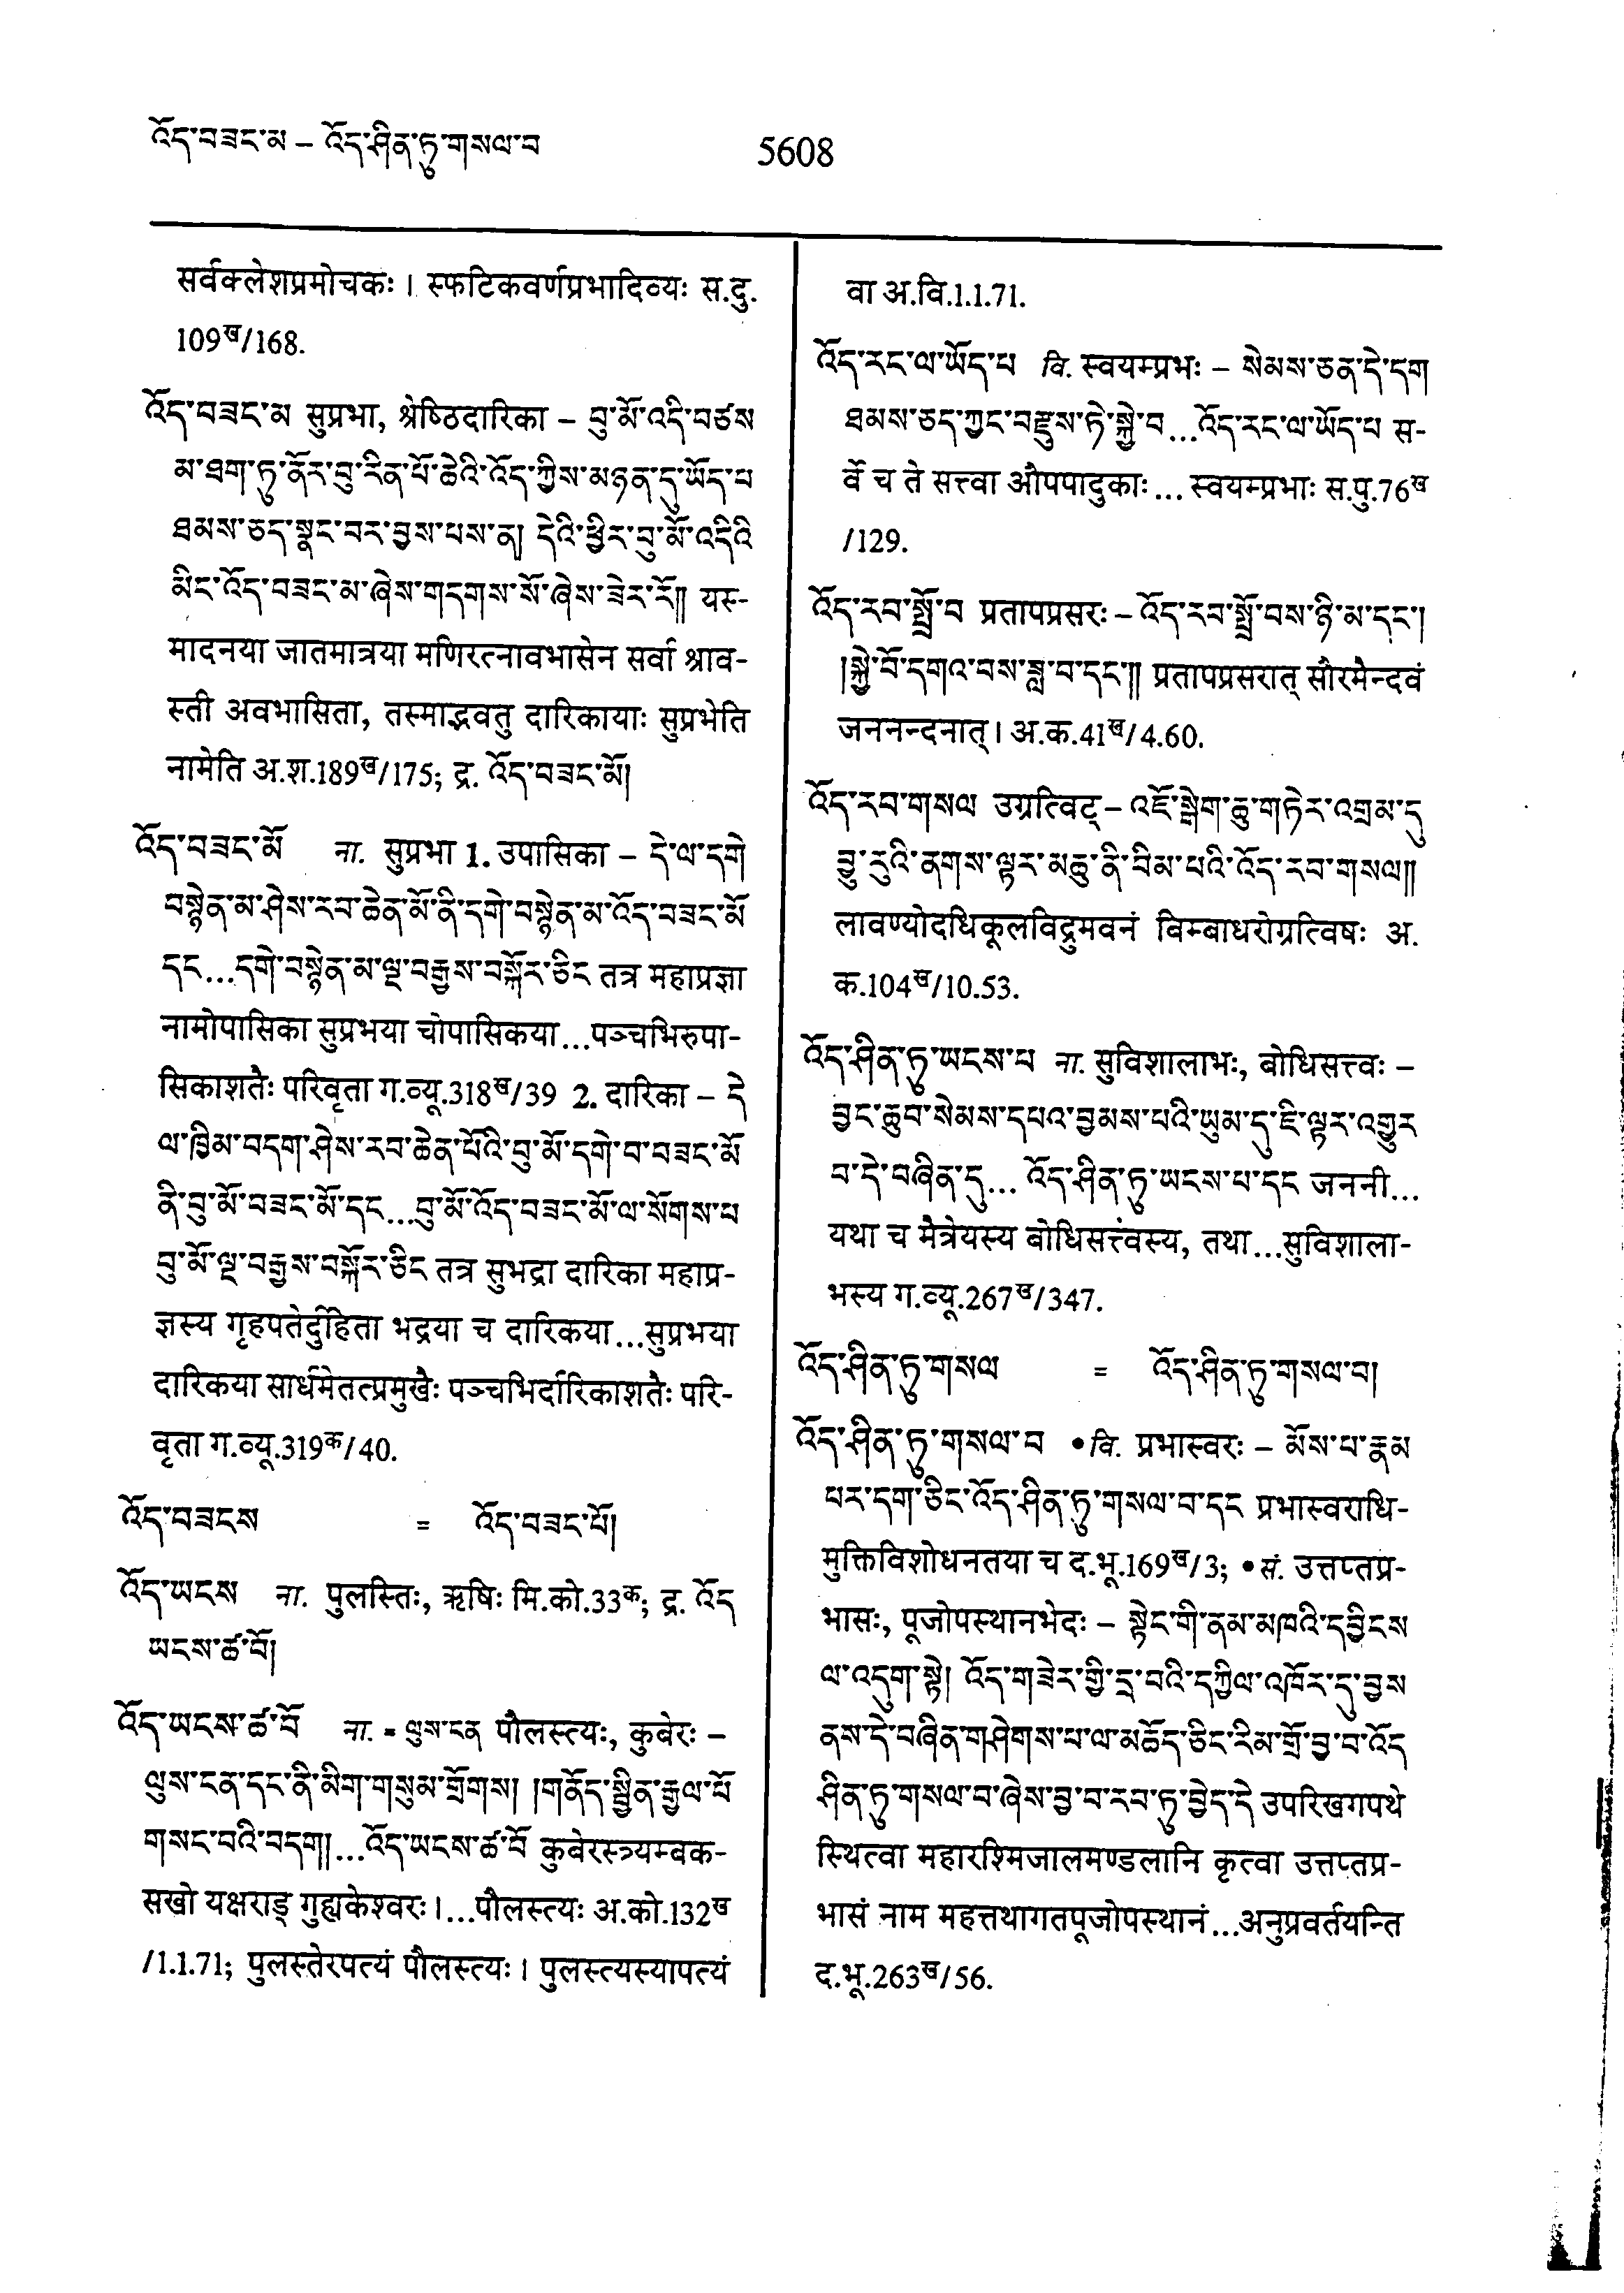 འོད་བཟང་མ – འོད་ཤིན་ཏུ་གསལ་བ
5608
सर्वक्लेशप्रमोचकः । स्फटिकवर्णप्रभादिव्यः स.दु.
109ख/168.
འོད་བཟང་མ सुप्रभा, श्रेष्ठिदारिका – བུ་མོ་འདི་བཙས
མ་ཐག་ཏུ་ནོར་བུ་རིན་པོ་ཆེའི་འོད་ཀྱིས་མཉན་དུ་ཡོད་པ
ཐམས་ཅད་སྣང་བར་བྱས་པས་ན། དེའི་ཕྱིར་བུ་མོ་འདིའི
མིང་འོད་བཟང་མ་ཞེས་གདགས་སོ་ཞེས་ཟེར་རོ།། यस्-
मादनया जातमात्रया मणिरत्नावभासेन सर्वा श्राव-
स्ती अवभासिता, तस्माद्भवतु दारिकायाः सुप्रभेति
नामेति अ.श.189ख/175; द्र. འོད་བཟང་མོ།
འོད་བཟང་མོ ना. सुप्रभा 1. उपासिका – དེ་ལ་དགེ
བསྙེན་མ་ཤེས་རབ་ཆེན་མོ་ནི་དགེ་བསྙེན་མ་འོད་བཟང་མོ
དང...དགེ་བསྙེན་མ་ལྔ་བརྒྱས་བསྐོར་ཅིང तत्र महाप्रज्ञा
नामोपासिका सुप्रभया चोपासिकया...पञ्चभिरुपा-
सिकाशतैः परिवृता ग.व्यू.318ख/39 2. दारिका – དེ
ལ་ཁྱིམ་བདག་ཤེས་རབ་ཆེན་པོའི་བུ་མོ་དགེ་བ་བཟང་མོ
ནི་བུ་མོ་བཟང་མོ་དང...བུ་མོ་འོད་བཟང་མོ་ལ་སོགས་པ
བུ་མོ་ལྔ་བརྒྱས་བསྐོར་ཅིང तत्र सुभद्रा दारिका महाप्र-
ज्ञस्य गृहपतेर्दुहिता भद्रया च दारिकया...सुप्रभया
दारिकया सार्धमेतत्प्रमुखैः पञ्चभिर्दारिकाशतैः परि-
वृता ग.व्यू.319क/40.
འོད་བཟངས = འོད་བཟང་པོ།
འོད་ཡངས ना. पुलस्तिः, ऋषिः मि.को.33क; द्र. འོད
ཡངས་ཚ་བོ།
འོད་ཡངས་ཚ་བོ ना. = ལུས་ངན पौलस्त्यः, कुबेरः –
ལུས་ངན་དང་ནི་མིག་གསུམ་གྲོགས། །གནོད་སྦྱིན་རྒྱལ་པོ
གསང་བའི་བདག།...འོད་ཡངས་ཚ་བོ कुबेरस्त्र्यम्बक-
सखो यक्षराड् गुह्यकेश्वरः ।...पौलस्त्यः अ.को.132ख
/1.1.71; पुलस्तेरपत्यं पौलस्त्यः । पुलस्त्यस्यापत्यं
वा अ.वि.1.1.71.
འོད་རང་ལ་ཡོད་པ वि. स्वयम्प्रभः – སེམས་ཅན་དེ་དག
ཐམས་ཅད་ཀྱང་བརྫུས་ཏེ་སྐྱེ་བ...འོད་རང་ལ་ཡོད་པ स-
र्वे च ते सत्त्वा औपपादुकाः... स्वयम्प्रभाः स.पु.76ख
/129.
འོད་རབ་སྤྲོ་བ प्रतापप्रसरः – འོད་རབ་སྤྲོ་བས་ཉི་མ་དང་།
།སྐྱེ་བོ་དགའ་བས་ཟླ་བ་དང་།། प्रतापप्रसरात् सौरमैन्दवं
जननन्दनात् । अ.क.41ख/4.60.
འོད་རབ་གསལ उग्रत्विट् – འཇོ་སྒེག་ཆུ་གཏེར་འགྲམ་དུ
བྱུ་རུའི་ནགས་ལྟར་མཆུ་ནི་བིམ་པའི་འོད་རབ་གསལ།།
लावण्योदधिकूलविद्रुमवनं बिम्बाधरोग्रत्विषः अ.
क.104ख/10.53.
འོད་ཤིན་ཏུ་ཡངས་པ ना. सुविशालाभः, बोधिसत्त्वः –
བྱང་ཆུབ་སེམས་དཔའ་བྱམས་པའི་ཡུམ་དུ་ཇི་ལྟར་འགྱུར
བ་དེ་བཞིན་དུ... འོད་ཤིན་ཏུ་ཡངས་པ་དང जननी...
यथा च मैत्रेयस्य बोधिसत्त्वस्य, तथा...सुविशाला-
भस्य ग.व्यू.267ख/347.
འོད་ཤིན་ཏུ་གསལ = འོད་ཤིན་ཏུ་གསལ་བ།
འོད་ཤིན་ཏུ་གསལ་བ • वि. प्रभास्वरः – མོས་པ་རྣམ
པར་དག་ཅིང་འོད་ཤིན་ཏུ་གསལ་བ་དང प्रभास्वराधि-
मुक्तिविशोधनतया च द.भू.169ख/3; • सं. उत्तप्तप्र-
भासः, पूजोपस्थानभेदः – སྟེང་གི་ནམ་མཁའི་དབྱིངས
ལ་འདུག་སྟེ། འོད་གཟེར་གྱི་དྲ་བའི་དཀྱིལ་འཁོར་དུ་བྱས
ནས་དེ་བཞིན་གཤེགས་པ་ལ་མཆོད་ཅིང་རིམ་གྲོ་བྱ་བ་འོད
ཤིན་ཏུ་གསལ་བ་ཞེས་བྱ་བ་རབ་ཏུ་བྱེད་དེ उपरिखगपथे
स्थित्वा महारश्मिजालमण्डलानि कृत्वा उत्तप्तप्र-
भासं नाम महत्तथागतपूजोपस्थानं...अनुप्रवर्तयन्ति
द.भू.263ख/56.